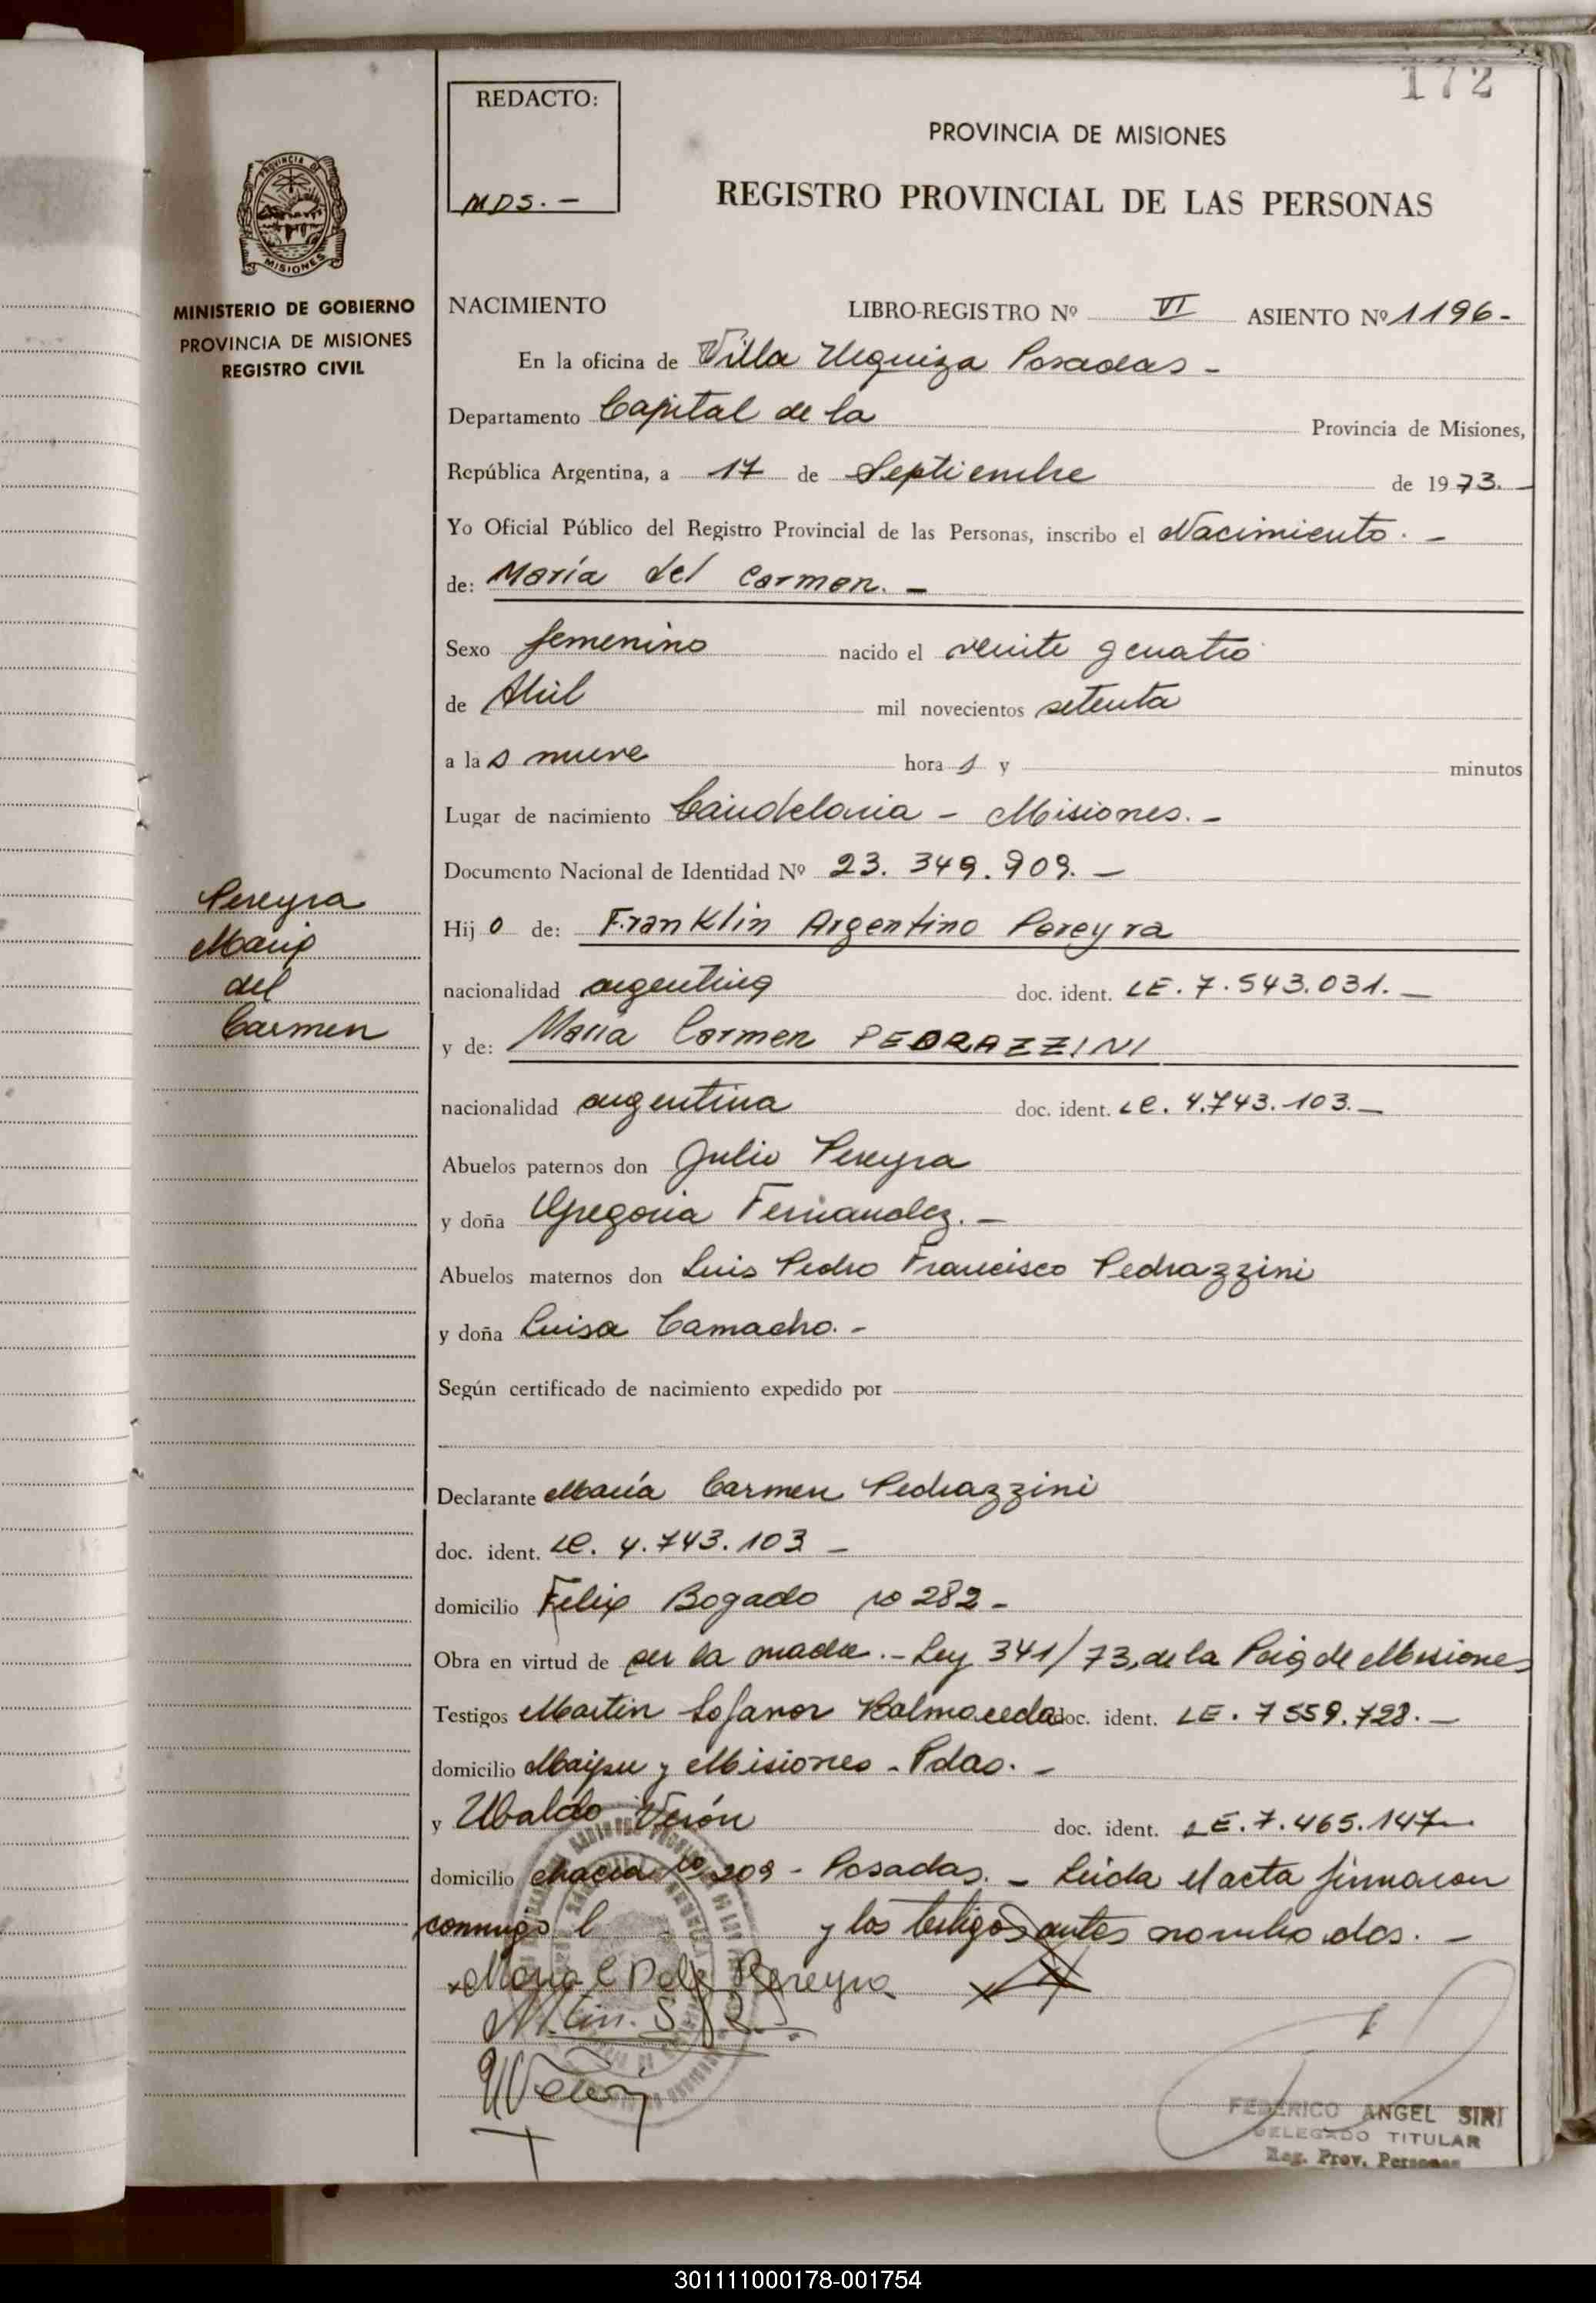 172
REDACTO:
MDS. -
PROVINCIA DE MISIONES
REGISTRO PROVINCIAL DE LAS PERSONAS
PROVINCIA DE
MISIONES
MINISTERIO DE GOBIERNO
PROVINCIA DE MISIONES
REGISTRO CIVIL
NACIMIENTO LIBRO-REGISTRO Nº VI ASIENTO Nº 1196-
En la oficina de Villa Urquiza Posadas -
Departamento Capital de la Provincia de Misiones,
República Argentina, a 17 de Septiembre de 1973.-
Yo Oficial Público del Registro Provincial de las Personas, inscribo el Nacimiento. -
de: María del Carmen. -
Sexo femenino nacido el veinte y cuatro
de Abril mil novecientos setenta
a las nueve hora s y minutos
Lugar de nacimiento Candelaria - Misiones. -
Documento Nacional de Identidad Nº 23.349.909. -
Pereyra
María
del
Carmen
Hij o de: Franklin Argentino Pereyra
nacionalidad argentina doc. ident. LE. 7.543.031. -
y de: María Carmen PEDRAZZINI
nacionalidad argentina doc. ident. LC. 4.743.103. -
Abuelos paternos don Julio Pereyra
y doña Gregoria Fernandez. -
Abuelos maternos don Luis Pedro Francisco Pedrazzini
y doña Luisa Camacho. -
Según certificado de nacimiento expedido por
Declarante María Carmen Pedrazzini
doc. ident. LC. 4.743.103 -
domicilio Felix Bogado Nº 282 -
Obra en virtud de ser la madre. - Ley 341/73, de la Pcia de Misiones
Testigos Martin Balmaceda doc. ident. LE. 7559.728. -
domicilio Maipu y Misiones - Pdas. -
y Ubaldo Verón doc. ident. LE. 7.465.147 -
domicilio chacra Nº 209 - Posadas. - Leida el acta firmaron
conmigo l y los testigos antes nombrados. -
Maria C P de Pereyra
UVerón
FEDERICO ANGEL SIRI
DELEGADO TITULAR
Reg. Prov. Personas
301111000178-001754